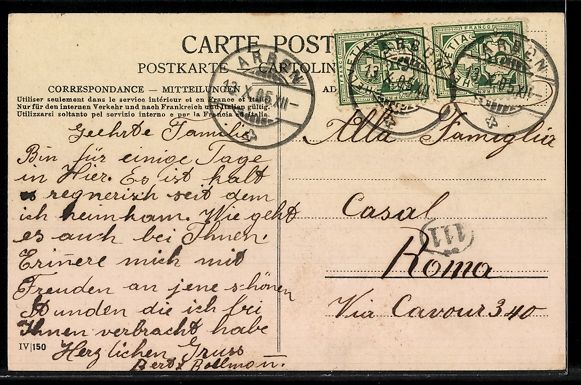 CARTE POST
POSTKARTE CARTOLIN
CORRESPONDANCE — MITTEILUNGEN
AD
Utiliser seulement dans le service intérieur et en France et Italie.
Nur für den internen Verkehr und nach Frankreich und Italien gültig.
Utilizzarsi soltanto pel servizio interno e per la Francia ed Italia.
ARBON
13.X.05.XII
ARBON
13.X.05
ARBON
13.X.05.XII
FRANCO
Geehrte Familie
Bin für einige Tage
in Hier. Es ist halt
so regnerisch seit dem
ich heimkam. Wie geht
es auch bei Ihnen.
Erin̄ere mich mit
Freuden an jene schönen
Stunden die ich bei
Ihnen verbracht habe
Herzlichen Gruss
Bert. Bollman̄.
IV|150
Alla Famiglia
Casal
111
Roma
Via Cavour 340